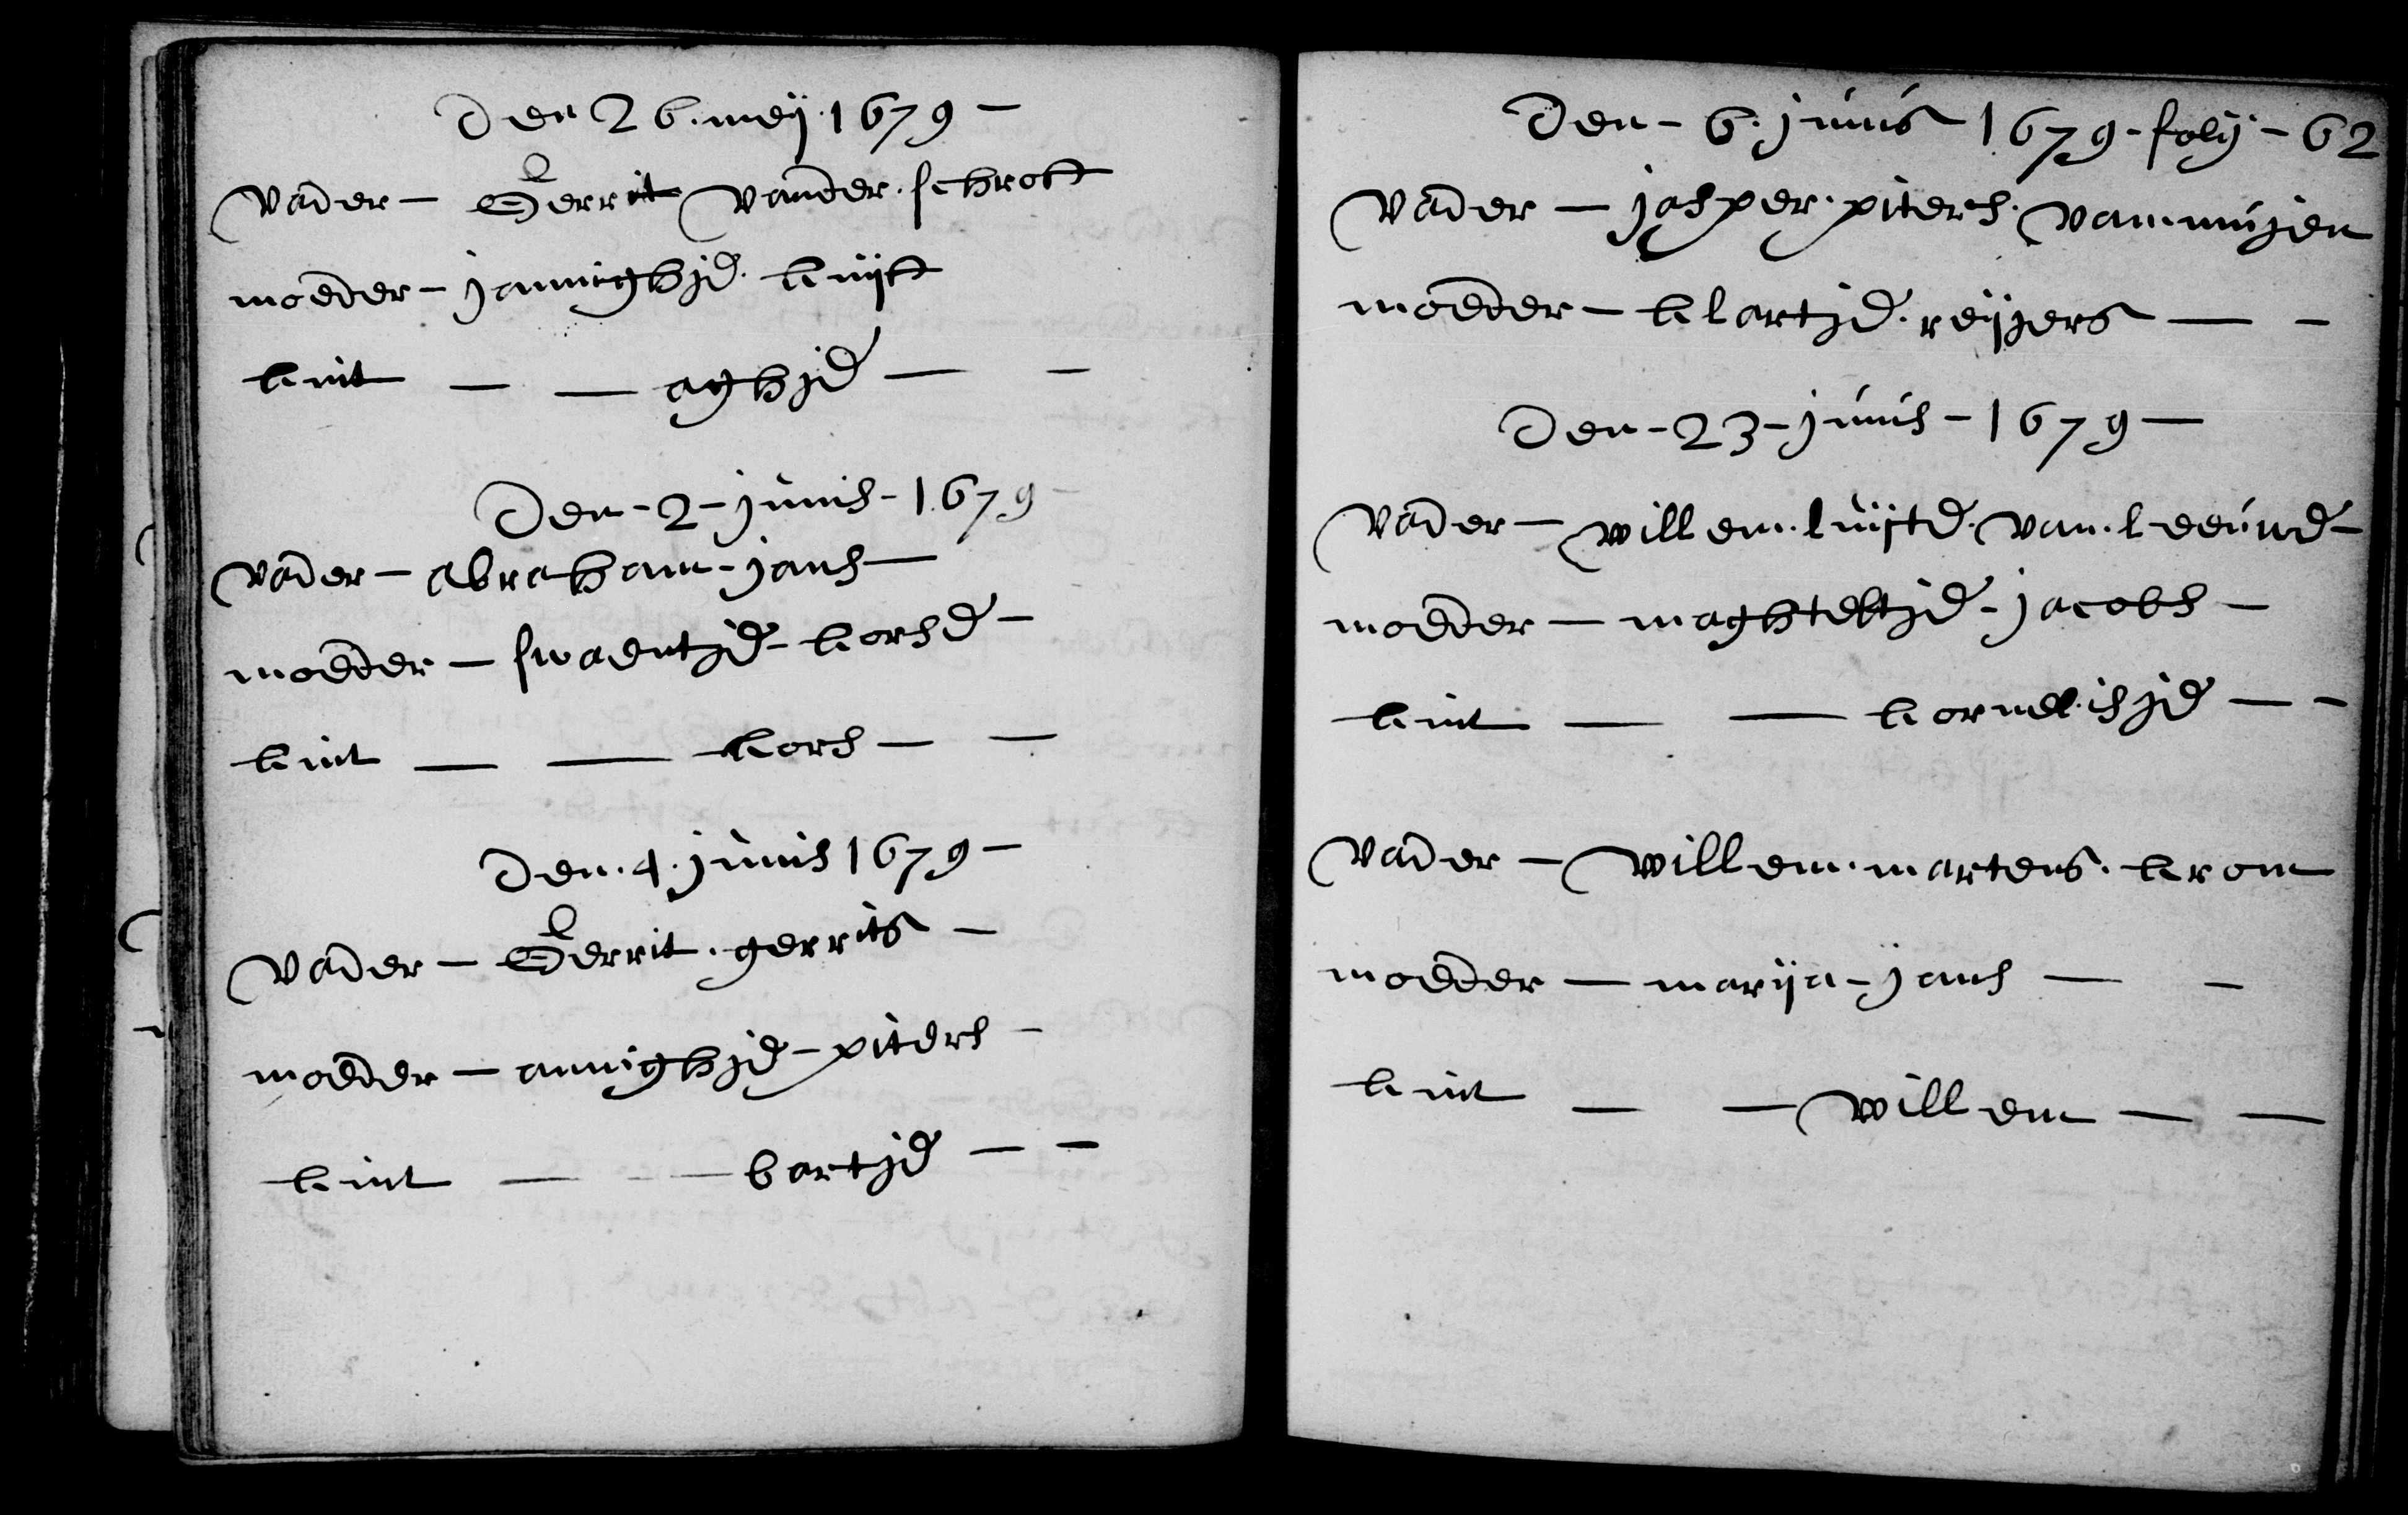 Den 26. meij. 1679 -
Vader - Gerrit vander. schrott
moeder - jannighje. kuijtt
kint - - aghje - -
Den - 2 - junis - 1679 -
Vader - abraham - jans -
moeder - swaentje - korse -
kint - - kors - -
Den. 4. junis 1679 -
Vader - Gerrit. gerrits -
moeder - annighje - piters -
kint - - - bartje - -
Den - 6. junis 1679 - folij - 62
Vader - jasper. piters. van. muijen
moeder - klartje. reijers - -
Den - 23 - junis - 1679 -
Vader - willem. luijte. van. leeuwe -
moeder - maghteltje - jacobs -
kint - - kornelisje - -
Vader - willem. martens. krom
moeder - marija - jans - -
kint - - willem - -